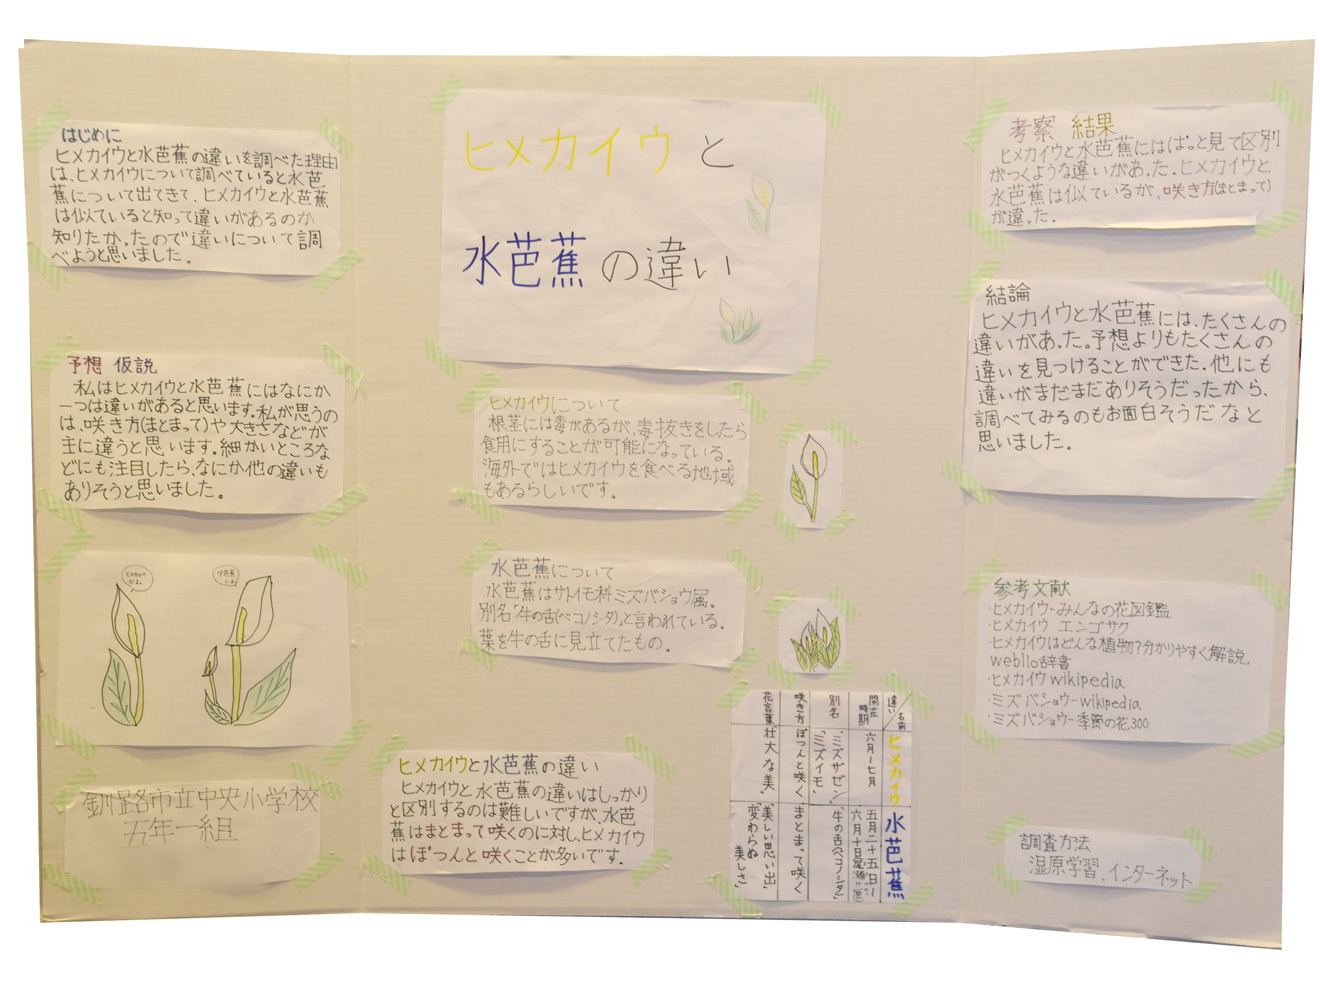 はじめに
ヒメカイウと水芭蕉の違いを調べた理由
は、ヒメカイウについて調べていると水芭
蕉について出てきて、ヒメカイウと水芭蕉
は似ていると知って違いがあるのか
知りたかったので違いについて調
べようと思いました。
予想 仮説
私はヒメカイウと水芭蕉にはなにか
一つは違いがあると思います。私が思うの
は、咲き方(まとまって)や大きさなどが
主に違うと思います。細かいところな
どにも注目したら、なにか他の違いも
ありそうと思いました。
ヒメカイウ
だよ。
水芭蕉
だよ。
釧路市立中央小学校
五年一組
ヒメカイウと
水芭蕉の違い
ヒメカイウについて
根茎には毒があるが、毒抜きをしたら
食用にすることが可能になっている。
海外ではヒメカイウを食べる地域
もあるらしいです。
水芭蕉について
水芭蕉はサトイモ科ミズバショウ属。
別名「牛の舌(ベコノシタ)」と言われている。
葉を牛の舌に見立てたもの。
ヒメカイウと水芭蕉の違い
ヒメカイウと水芭蕉の違いはしっかり
と区別するのは難しいですが、水芭
蕉はまとまって咲くのに対し、ヒメカイウ
はぽつんと咲くことが多いです。
名前
違い
ヒメカイウ
水芭蕉
開花
時期
六月〜七月
五月二十五日〜
六月十日
別名
「ミズザゼン」
「ミズイモ」
「牛の舌(ベコノシタ)」
咲き方
ぽつんと咲く
まとまって咲く
花言葉
「壮大な美」
「美しい思い出」
「変わらぬ
美しさ」
考察 結果
ヒメカイウと水芭蕉にはぱっと見て区別
がつくような違いがあった。ヒメカイウと
水芭蕉は似ているが、咲き方(まとまって)
が違った。
結論
ヒメカイウと水芭蕉には、たくさんの
違いがあった。予想よりもたくさんの
違いを見つけることができた。他にも
違いがまだまだありそうだったから、
調べてみるのもお面白そうだなと
思いました。
参考文献
・ヒメカイウ-みんなの花図鑑
・ヒメカイウ エンゴサク
・ヒメカイウはどんな植物?分かりやすく解説
weblio辞書
・ヒメカイウwikipedia
・ミズバショウ-wikipedia
・ミズバショウ-季節の花300
調査方法
湿原学習、インターネット